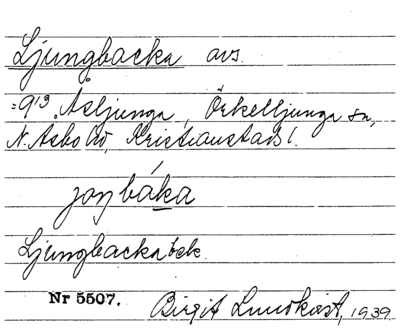 Ljungbacka avs.
=9¹³. Åsljunga, Örkelljunga sn,
N. Åsbo hd, Kristianstads l.
joŋbáka
Ljungbacka bek.
Nr 5507. Birgit Lundkvist, 1939